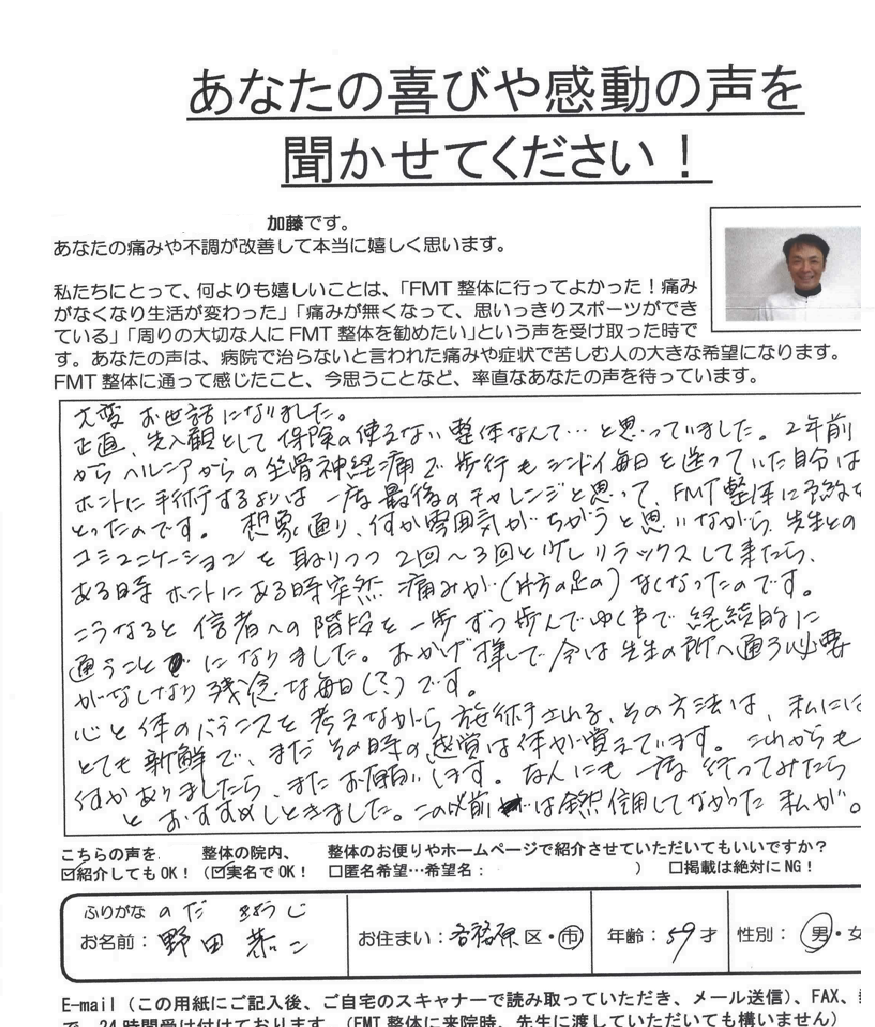 あなたの喜びや感動の声を
聞かせてください！
加藤です。
あなたの痛みや不調が改善して本当に嬉しく思います。
私たちにとって、何よりも嬉しいことは、「FMT 整体に行ってよかった！痛み
がなくなり生活が変わった」「痛みが無くなって、思いっきりスポーツができ
ている」「周りの大切な人に FMT 整体を勧めたい」という声を受け取った時で
す。あなたの声は、病院で治らないと言われた痛みや症状で苦しむ人の大きな希望になります。
FMT 整体に通って感じたこと、今思うことなど、率直なあなたの声を待っています。
大変 お世話になりました。
正直、先入観として保険の使えない整体なんて…と思っていました。2年前
からヘルニアからの坐骨神経痛で歩行もシンドイ毎日を送っていた自分は
ホントに手術するよりは一度最後のチャレンジと思って、FMT整体に予約を
とったのです。想像通り、何か雰囲気がちがうと思いながら、先生との
コミュニケーションを取りつつ2回～3回と少しリラックスして来たら、
ある時 ホントにある時突然 痛みが(片方の足の)なくなったのです。
こうなると信者への階段を一歩ずつ歩んでゆく事で経続的に
通うことになりました。おかげ様で今は先生の所へ通う必要
がなくなり残念な毎日(?)です。
心と体のバランスを考えながら施術される、その方法は、私には
とても新鮮で、まだその時の感覚は体が覚えています。これからも
何かありましたら、またお願いします。なんにも一度行ってみたら
とおすすめしときました。この以前は全然信用してなかった私が。
こちらの声を 整体の院内、 整体のお便りやホームページで紹介させていただいてもいいですか？
☑紹介しても OK！（☑実名で OK！ □匿名希望…希望名： ） □掲載は絶対に NG！
ふりがな のだ きょうじ
お名前：野田 恭二 お住まい：各務原 区・市 年齢：59才 性別：男・女
E-mail（この用紙にご記入後、ご自宅のスキャナーで読み取っていただき、メール送信）、FAX、
で、24 時間受け付けております。（FMT 整体に来院時、先生に渡していただいても構いません）